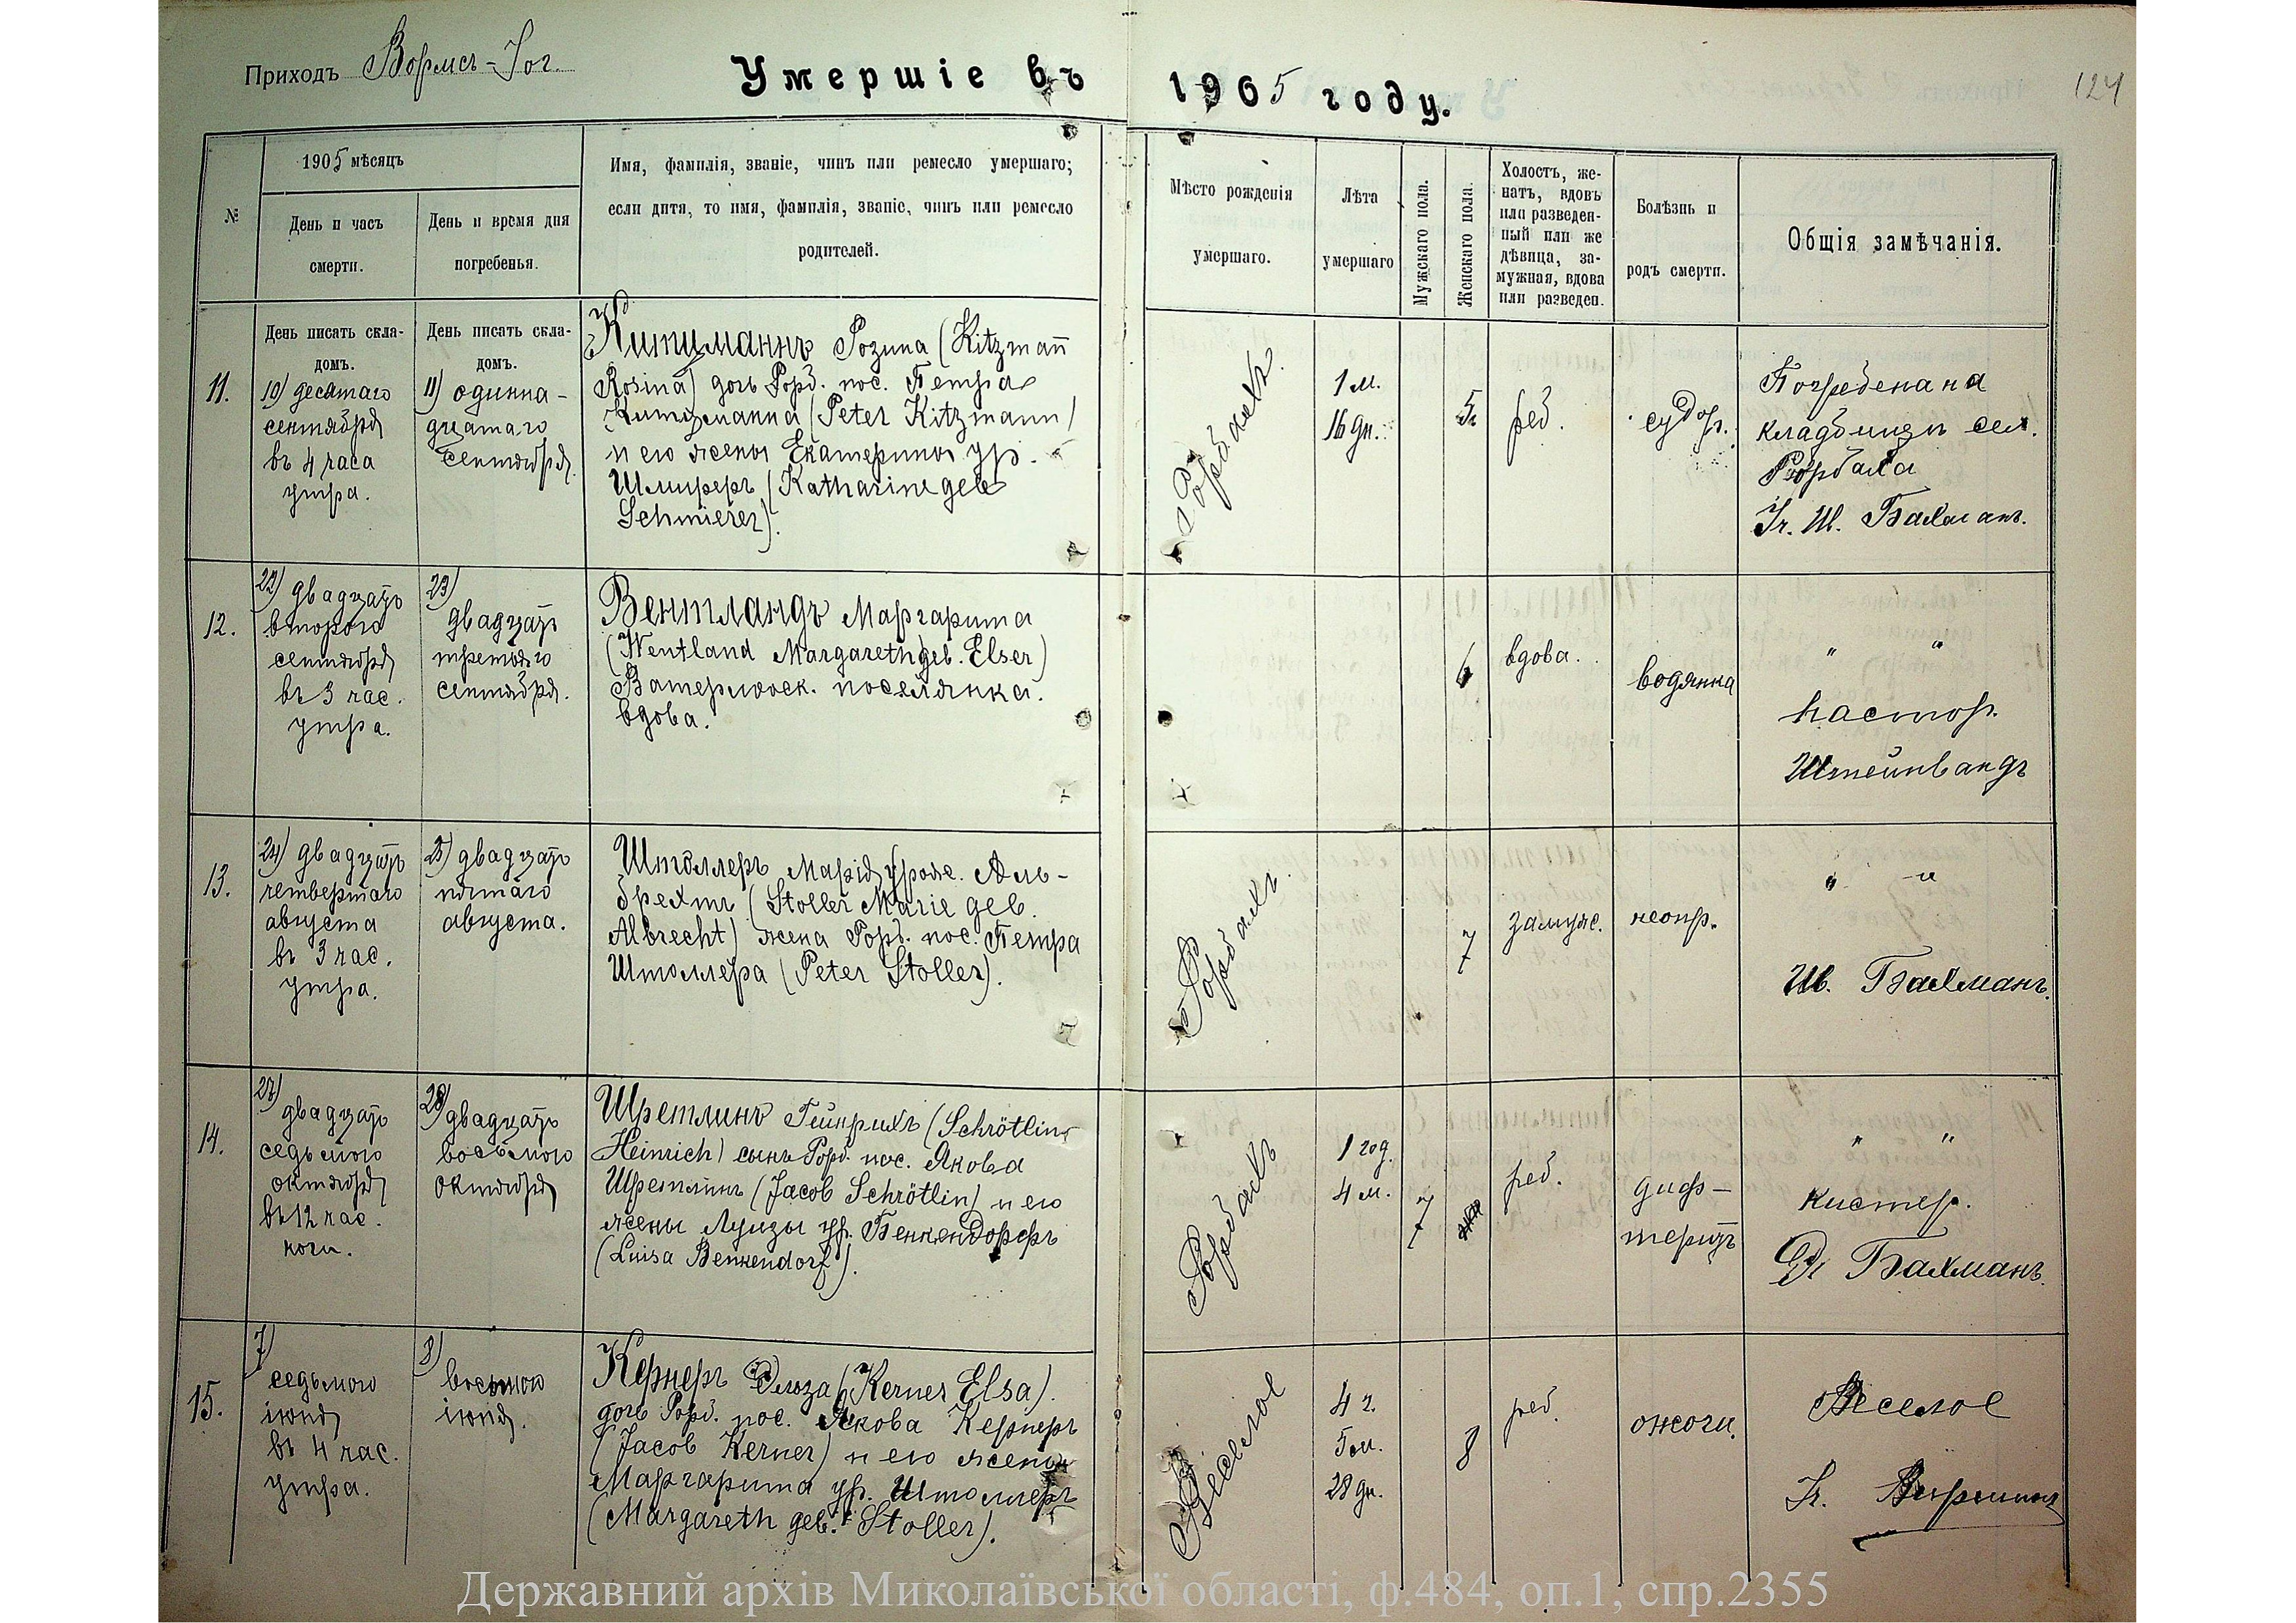 Приходъ Вормсъ-Іог.
Умершіе въ 1905 году.
124
№
1905 мѣсяцъ
День и часъ
смерти.
День и время дня
погребенья.
Имя, фамилія, званіе, чинъ или ремесло умершаго;
если дитя, то имя, фамилія, званіе, чинъ или ремесло
родителей.
Мѣсто рожденія
умершаго.
Лѣта
умершаго
Мужскаго пола.
Женскаго пола.
Холостъ, же-
натъ, вдовъ
или разведен-
ный или же
дѣвица, за-
мужная, вдова
или разведен.
Болѣзнь и
родъ смерти.
Общія замѣчанія.
День писать скла-
домъ.
День писать скла-
домъ.
11.
10) десятаго
сентября
въ 4 часа
утра.
11) одинна-
дцатаго
сентября.
Китцманнъ Розина (Kitzmañ
Rosina) дочь Рорб. пос. Петра
Китцманна (Peter Kitzmann)
и его жены Екатерины ур.
Шмиреръ (Katharine geb
Schmierer).
Рорбахъ.
1 м.
16 дн.
5
реб.
судор.
Погребена на
кладбищѣ сел.
Рорбаха
Ш. Бахман.
12.
22) двадцать
второго
сентября
въ 3 час.
утра.
23)
двадцать
третьяго
сентября.
Вентландъ Маргарита
(Wentland Margareth geb. Elser)
Ватерлооск. поселянка.
вдова.
6
вдова.
водянка
" "
пастор.
Штейнвандъ
13.
24) двадцать
четвертаго
августа
въ 3 час.
утра.
25) двадцать
пятаго
августа.
Штоллеръ Марія урож. Аль-
брехтъ (Stoller Marie geb.
Albrecht) жена Рорб. пос. Петра
Штоллера (Peter Stoller).
Рорбахъ.
7
замуж.
неопр.
" "
Ш. Бахманъ.
14.
27)
двадцать
седьмого
октября
въ 12 час.
ночи.
28) двадцать
восьмого
октября
Шретлинъ Гейнрихъ (Schrötlin
Heinrich) сынъ Рорб. пос. Якова
Шретлинъ (Jacob Schrötlin) и его
жены Луизы ур. Бенкендорфъ
(Luisa Benkendorf).
Рорбахъ
1 год.
4 м.
7
реб.
диф-
теритъ
" "
кистер.
Бахманъ.
15.
7)
седьмого
іюня
въ 4 час.
утра.
8)
восьмого
іюня.
Кернеръ Эльза (Kerner Elsa).
дочь Рорб. пос. Якова Кернеръ
(Jacob Kerner) и его жены
Маргарита ур. Штоллеръ
(Margareth geb. Stoller).
Веселое
4 г.
5 м.
28 дн.
8
реб.
ожоги.
Веселое
Державний архів Миколаївської області, ф.484, оп.1, спр.2355